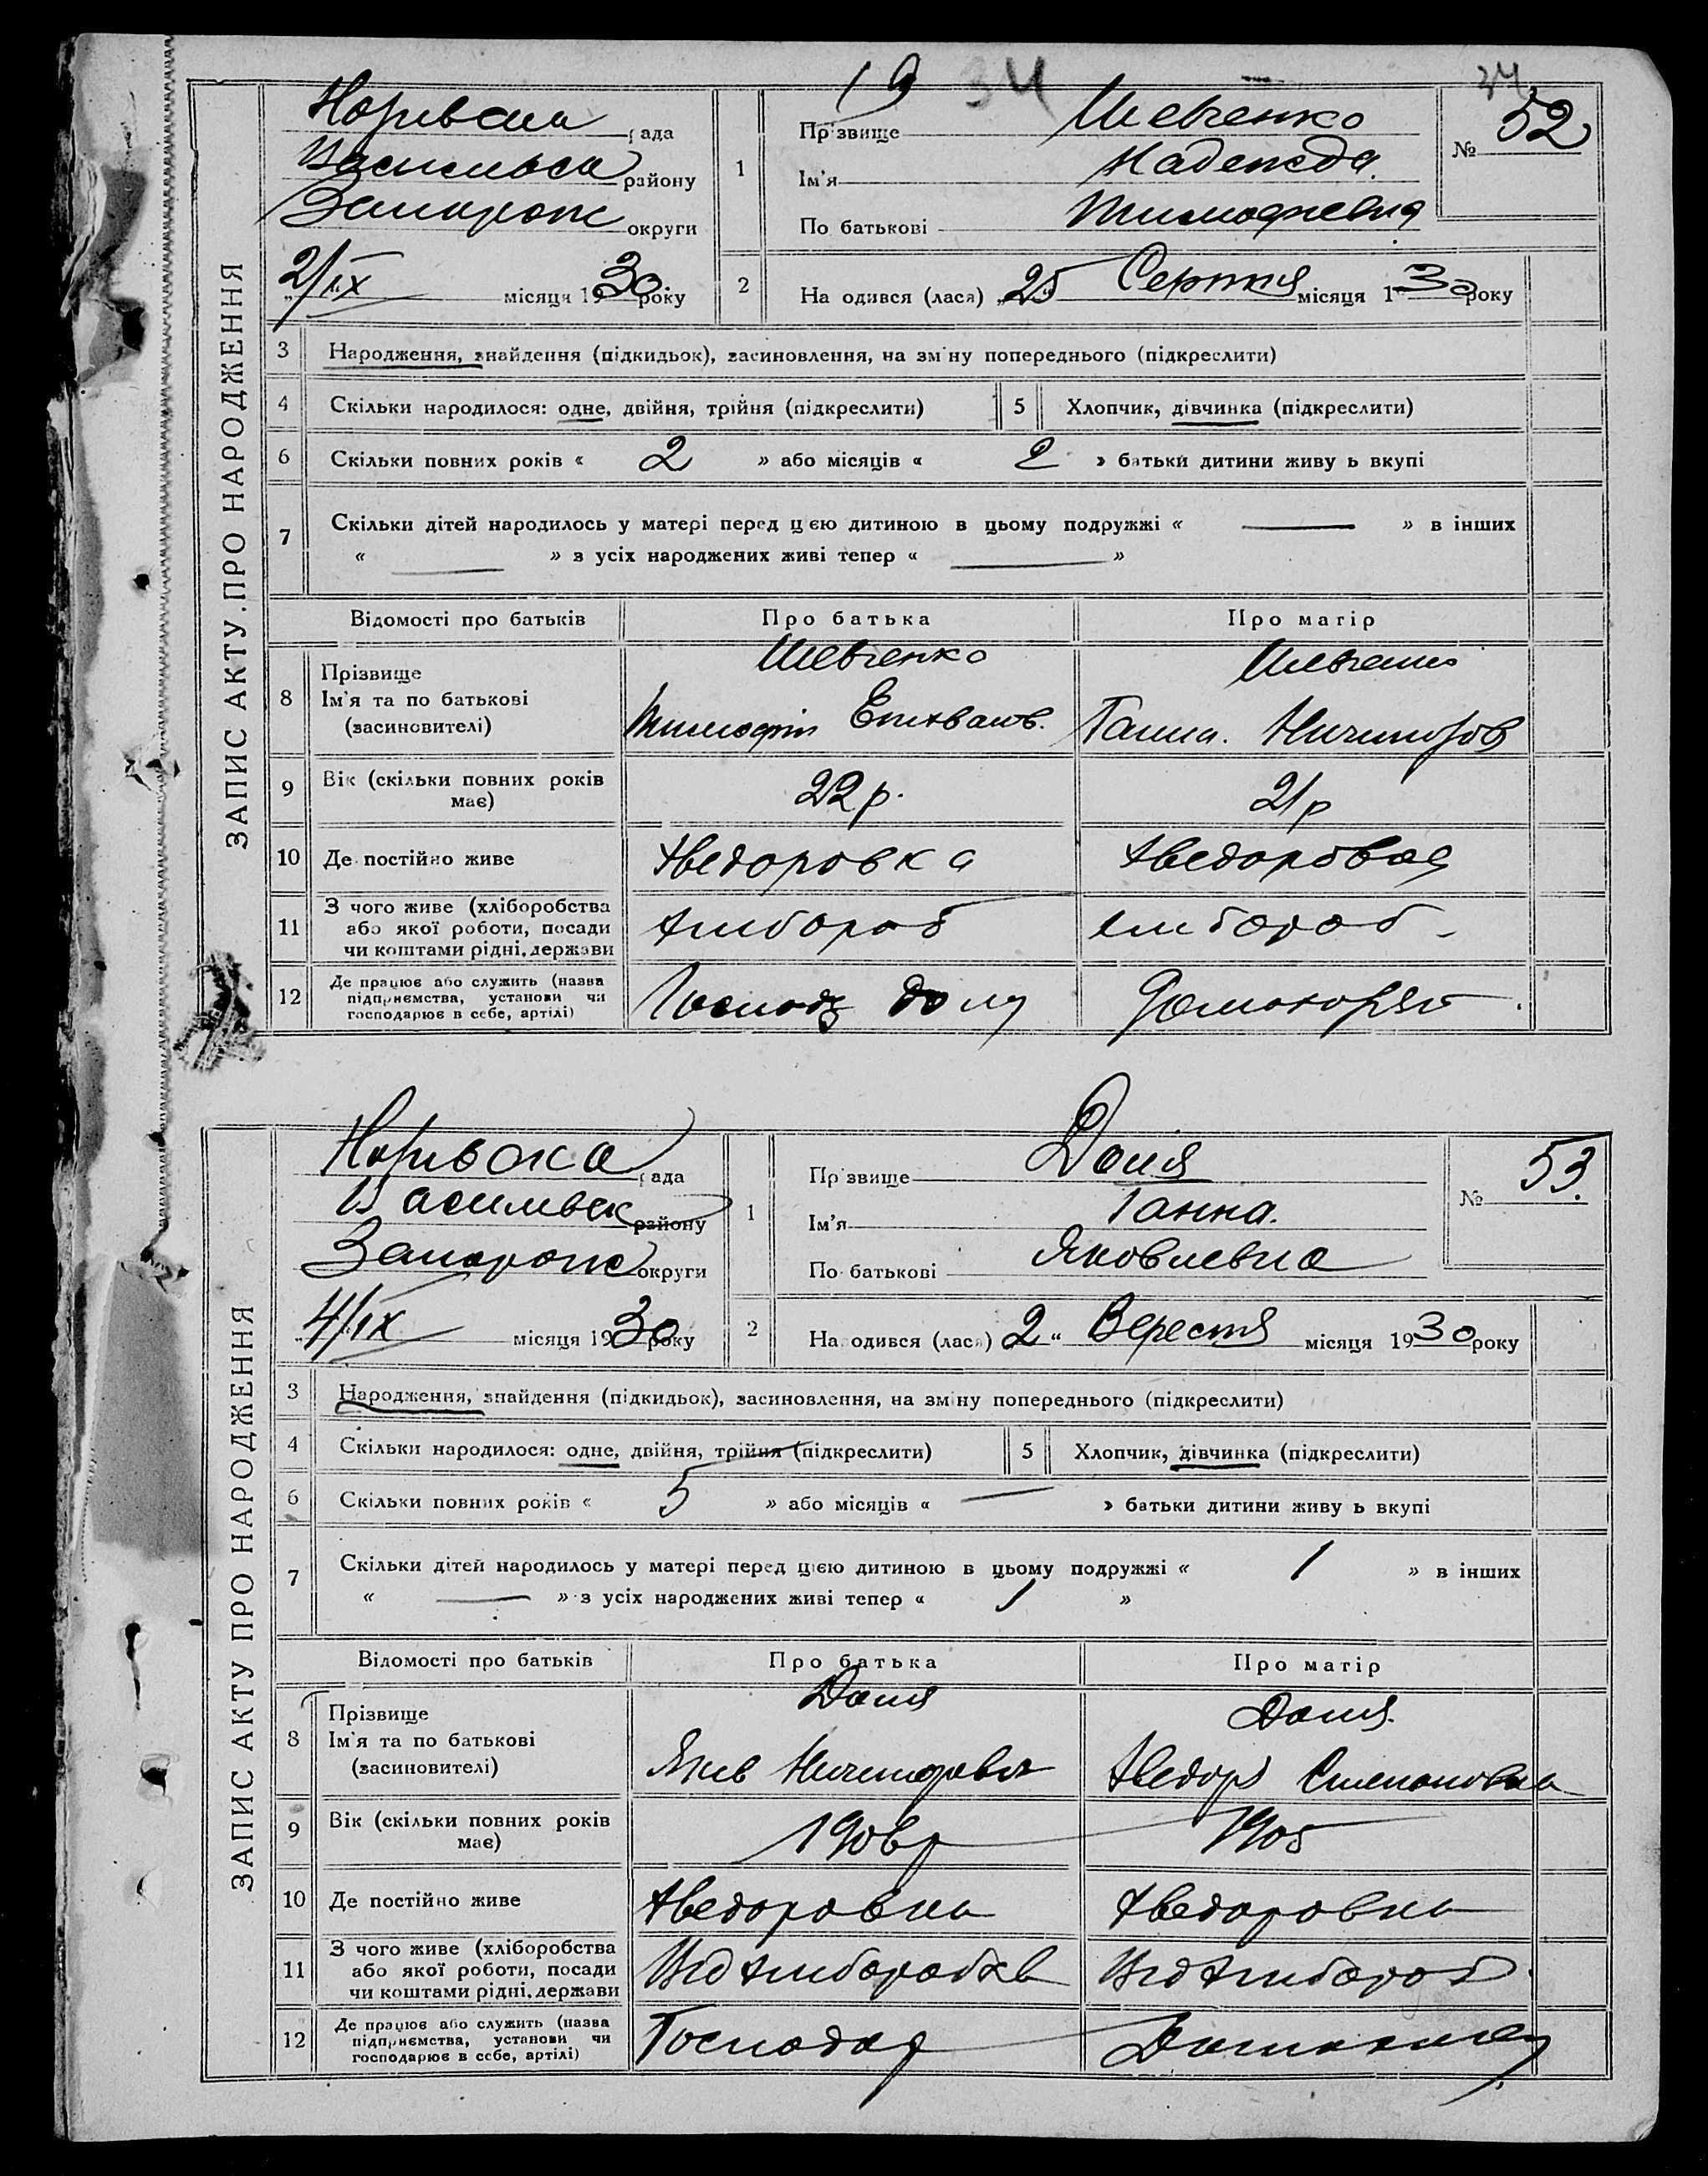 19 34 34
ЗАПИС АКТУ ПРО НАРОДЖЕННЯ
рада
району
Запорож округи
2/ІХ місяця 1930 року
1 Прізвище Шевченко
Ім'я Надежда.
По батькові Тимофіевна
№ 52
2 Народився (лася) „25 Серпня місяця 1930 року
3 Народження, знайдення (підкидьок), засиновлення, на зміну попереднього (підкреслити)
4 Скільки народилося: одне, двійня, трійня (підкреслити) 5 Хлопчик, дівчинка (підкреслити)
6 Скільки повних років « 2 » або місяців « 2 » батьки дитини живуть вкупі
7 Скільки дітей народилось у матері перед цією дитиною в цьому подружжі « — » в інших
« — » з усіх народжених живі тепер « — »
Відомості про батьків Про батька Про матір
8 Прізвище Шевченко Шевченко
Ім'я та по батькові Тимофій Ганна. Ничипоров
(засиновителі)
9 Вік (скільки повних років 22 р. 21 р
має)
10 Де постійно живе Хведоровка Хведоровка
11 З чого живе (хліборобства
або якої роботи, посади хлибороб хлибороб -
чи коштами рідні, держави
12 Де працює або служить (назва
підприємства, установи чи
господарює в себе, артілі)
ЗАПИС АКТУ ПРО НАРОДЖЕННЯ
рада
Васильвск району
Запорож округи
4/ІХ місяця 1930 року
1 Прізвище Доля
Ім'я Ганна.
По батькові Яковлевна
№ 53.
2 Народився (лася) 2 “ Вересня місяця 1930 року
3 Народження, знайдення (підкидьок), засиновлення, на зміну попереднього (підкреслити)
4 Скільки народилося: одне, двійня, трійня (підкреслити) 5 Хлопчик, дівчинка (підкреслити)
6 Скільки повних років « 5 » або місяців « — » батьки дитини живуть вкупі
7 Скільки дітей народилось у матері перед цією дитиною в цьому подружжі « 1 » в інших
« — » з усіх народжених живі тепер « 1 »
Відомості про батьків Про батька Про матір
8 Прізвище Доля Доля.
Ім'я та по батькові Яків Ничипорович Хведора Степановна
(засиновителі)
9 Вік (скільки повних років 1906 р 1905
має)
10 Де постійно живе Хведоровка Хведоровка
11 З чого живе (хліборобства
або якої роботи, посади Від хлиборобства Від хлибороб
чи коштами рідні, держави
12 Де працює або служить (назва
підприємства, установи чи Господар
господарює в себе, артілі)